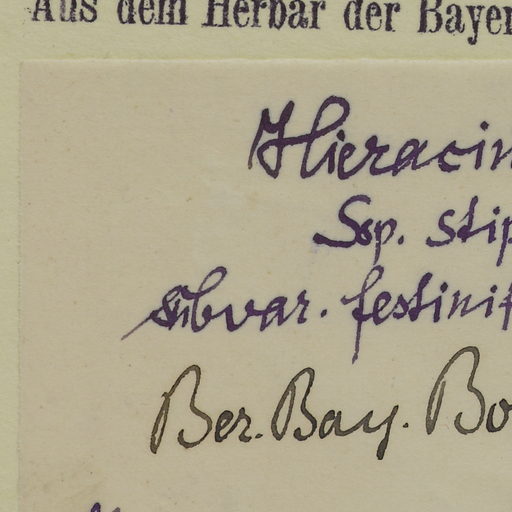 Aus dem Herbar der Bayer
Hieracin
Ssp. stip
subvar. festinif
Ber. Bay. Bo